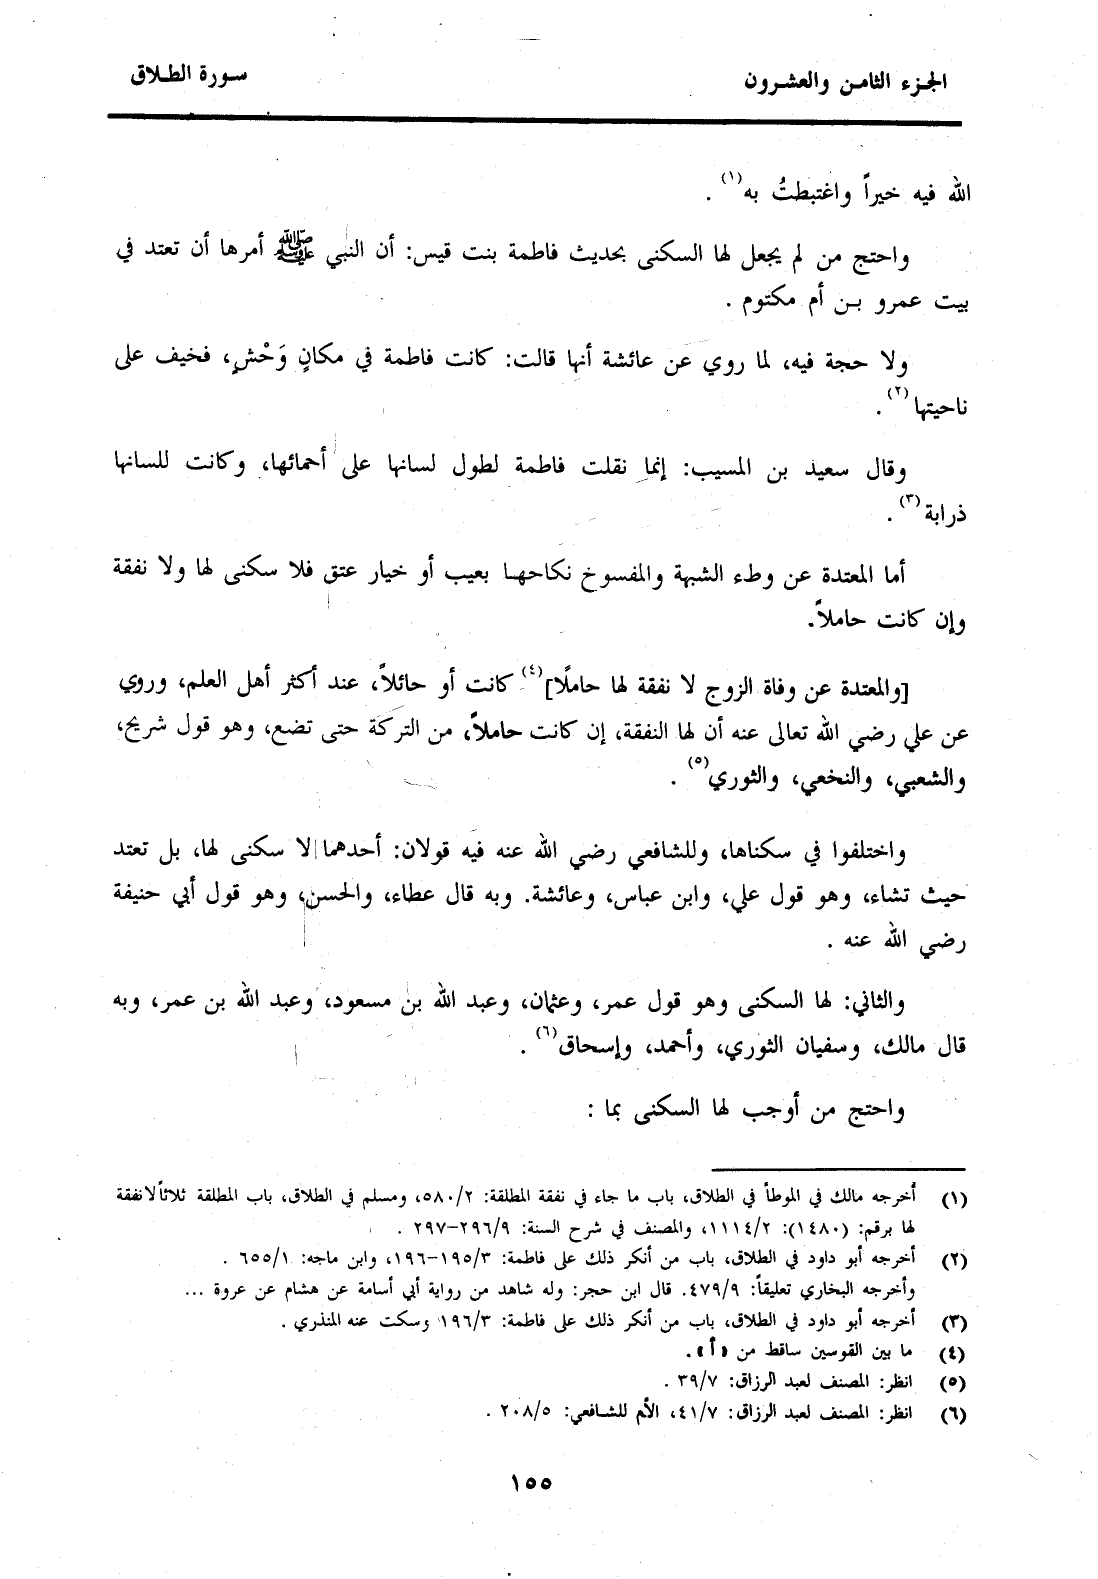 الجزء الثامن والعشرون
سورة الطلاق
الله فيه خيراً واغتبطتُ به(١) .
واحتج من لم يجعل لها السكنى بحديث فاطمة بنت قيس: أن النبي ﷺ أمرها أن تعتد في
بيت عمرو بن أم مكتوم .
ولا حجة فيه، لما روي عن عائشة أنها قالت: كانت فاطمة في مكانٍ وَحْشٍ، فخيف على
ناحيتها(٢) .
وقال سعيد بن المسيب: إنما نقلت فاطمة لطول لسانها على أحمائها، وكانت للسانها
ذرابة(٣) .
أما المعتدة عن وطء الشبهة والمفسوخ نكاحها بعيب أو خيار عتق فلا سكنى لها ولا نفقة
وإن كانت حاملاً.
[والمعتدة عن وفاة الزوج لا نفقة لها حاملًا](٤) كانت أو حائلاً، عند أكثر أهل العلم، وروي
عن علي رضي الله تعالى عنه أن لها النفقة، إن كانت حاملاً، من التركة حتى تضع، وهو قول شريح،
والشعبي، والنخعي، والثوري(٥) .
واختلفوا في سكناها، وللشافعي رضي الله عنه فيه قولان: أحدهما لا سكنى لها، بل تعتد
حيث تشاء، وهو قول علي، وابن عباس، وعائشة. وبه قال عطاء، والحسن، وهو قول أبي حنيفة
رضي الله عنه .
والثاني: لها السكنى وهو قول عمر، وعثمان، وعبد الله بن مسعود، وعبد الله بن عمر، وبه
قال مالك، وسفيان الثوري، وأحمد، وإسحاق(٦) .
واحتج من أوجب لها السكنى بما :
(١) أخرجه مالك في الموطأ في الطلاق، باب ما جاء في نفقة المطلقة: ٥٨٠/٢، ومسلم في الطلاق، باب المطلقة ثلاثاً لا نفقة
لها برقم: (١٤٨٠): ١١١٤/٢، والمصنف في شرح السنة: ٢٩٦/٩-٢٩٧ .
(٢) أخرجه أبو داود في الطلاق، باب من أنكر ذلك على فاطمة: ١٩٥/٣-١٩٦، وابن ماجه: ٦٥٥/١ .
وأخرجه البخاري تعليقاً: ٤٧٩/٩. قال ابن حجر: وله شاهد من رواية أبي أسامة عن هشام عن عروة ...
(٣) أخرجه أبو داود في الطلاق، باب من أنكر ذلك على فاطمة: ١٩٦/٣ وسكت عنه المنذري .
(٤) ما بين القوسين ساقط من «أ».
(٥) انظر: المصنف لعبد الرزاق: ٣٩/٧ .
(٦) انظر: المصنف لعبد الرزاق: ٤١/٧، الأم للشافعي: ٢٠٨/٥ .
١٥٥